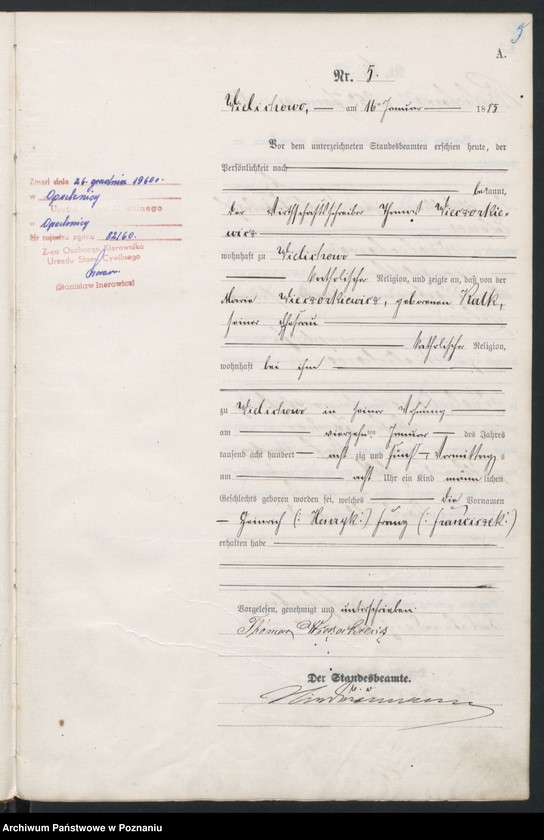 5
A.
Nr. 5.
Wielichowo, am 16 Januar 1885
Vor dem unterzeichneten Standesbeamten erschien heute, der
Persönlichkeit nach
bekannt,
der Wirthschaftsschreiber Thomas Wieczorkie-
wicz
wohnhaft zu Wielichowo
katholischer Religion, und zeigte an, daß von der
Marie Wieczorkiewicz, geborenen Kalk,
seiner Ehefrau
katholischer Religion,
wohnhaft bei ihm
zu Wielichowo in seiner Wohnung
am vierzehnten Januar des Jahres
tausend acht hundert acht zig und fünf Vormittags
um acht Uhr ein Kind männlichen
Geschlechts geboren worden sei, welches die Vornamen
Heinrich (: Henryk :) Franz (: Franciszek :)
erhalten habe
Vorgelesen, genehmigt und unterschrieben
Thomas Wieczorkiewicz
Der Standesbeamte.
Zmarł dnia 26. grudnia 1960 r.
w Opalenicy
Urząd Stanu Cywilnego
w Opalenicy
Nr rejestru zgonu 82/60.
Z-ca Osobnego Kierownika
Urzędu Stanu Cywilnego
(Stanisław Inerowicz)
Archiwum Państwowe w Poznaniu